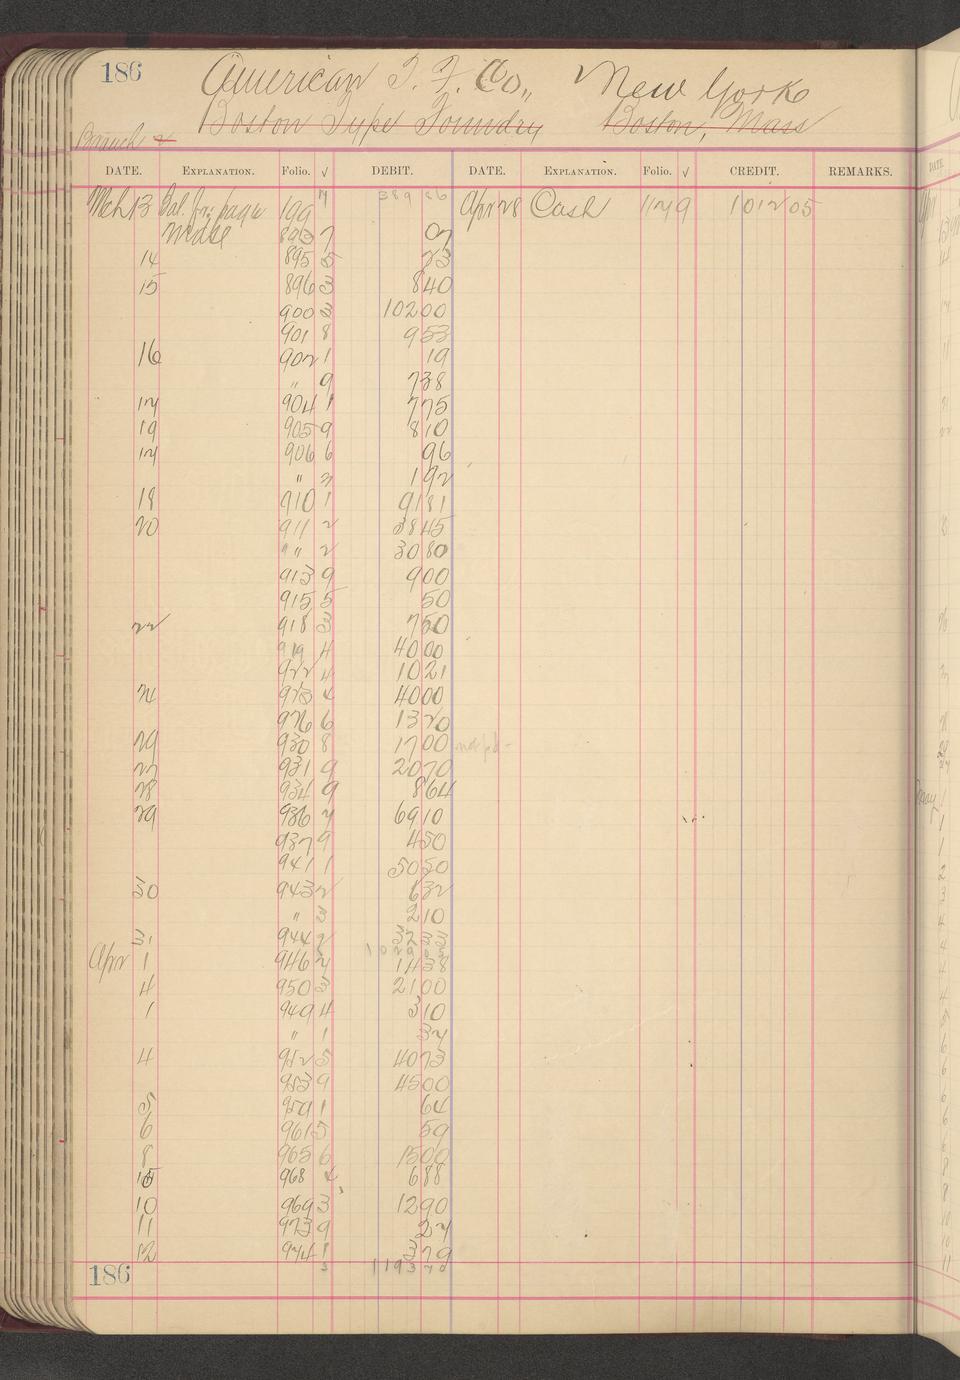 186
American T. F. Co., New York
Boston Type Foundry Boston, Mass
Branch
DATE. EXPLANATION. Folio. √ DEBIT. DATE. EXPLANATION. Folio. √ CREDIT. REMARKS.
Mch 13 Bal. fr. page 199 389 86 Apr 28 Cash 1179 1012 05
Mdse 893 7 07
14 895 5 73
15 896 3 8 40
900 3 102 00
901 8 9 53
16 902 1 19
" 9 7 38
17 904 1 7 75
19 905 9 8 10
17 906 6 96
" 1 92
18 910 1 91 81
20 911 2 38 45
" " 2 30 80
913 9 9 00
915 5 50
22 918 3 7 50
919 4 40 00
922 4 10 21
24 923 4 40 00
926 6 13 20
29 930 8 17 00
27 931 9 20 70
28 934 9 8 64
29 936 7 69 10
937 9 4 50
941 1 50 50
30 943 2 6 32
" 3 2 10
31 944 2
Apr 1 946 14 38
4 950 3 21 00
1 949 4 3 10
" 1 37
4 952 5 40 73
953 9 45 00
5 959 1 64
6 961 5 59
8 965 6 15 00
968 4 6 88
10 969 3 12 90
11 973 9 27
12 974 1 3 79
3 1193 70
186